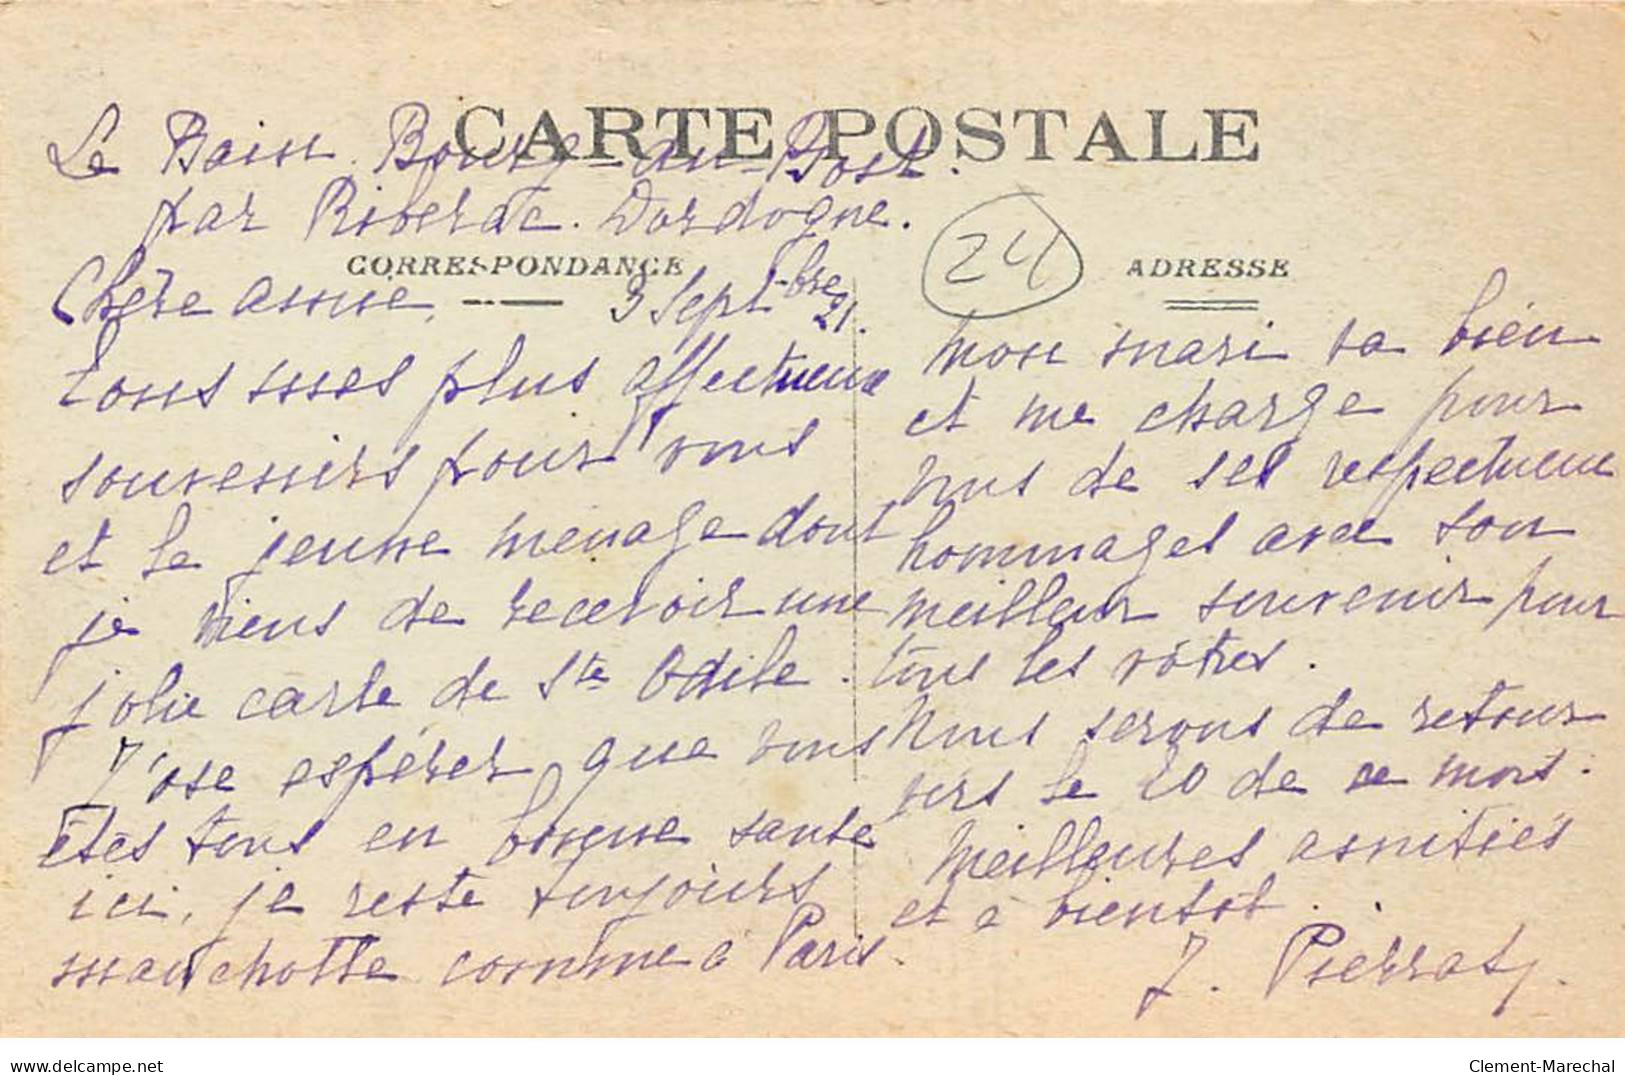 CARTE POSTALE
Le Bain. Bourg-du-Bost.
par Riberac. Dordogne.
CORRESPONDANCE
Chère amie, 3 Sept.bre 21.
tous mes plus affectueux
souvenirs pour vous
et le jeune ménage dont
je viens de recevoir une
jolie carte de Ste Odile.
J'ose espérer que vous
êtes tous en bonne santé
ici, je reste toujours
manchotte comme à Paris.
24
ADRESSE
mon mari va bien
et me charge pour
vous de ses respectueux
hommages avec son
meilleur souvenir pour
tous les vôtres.
Nous serons de retour
vers le 20 de ce mois.
Meilleures amitiés
et à bientôt.
J. Pierrat
www.delcampe.net
Clement-Marechal